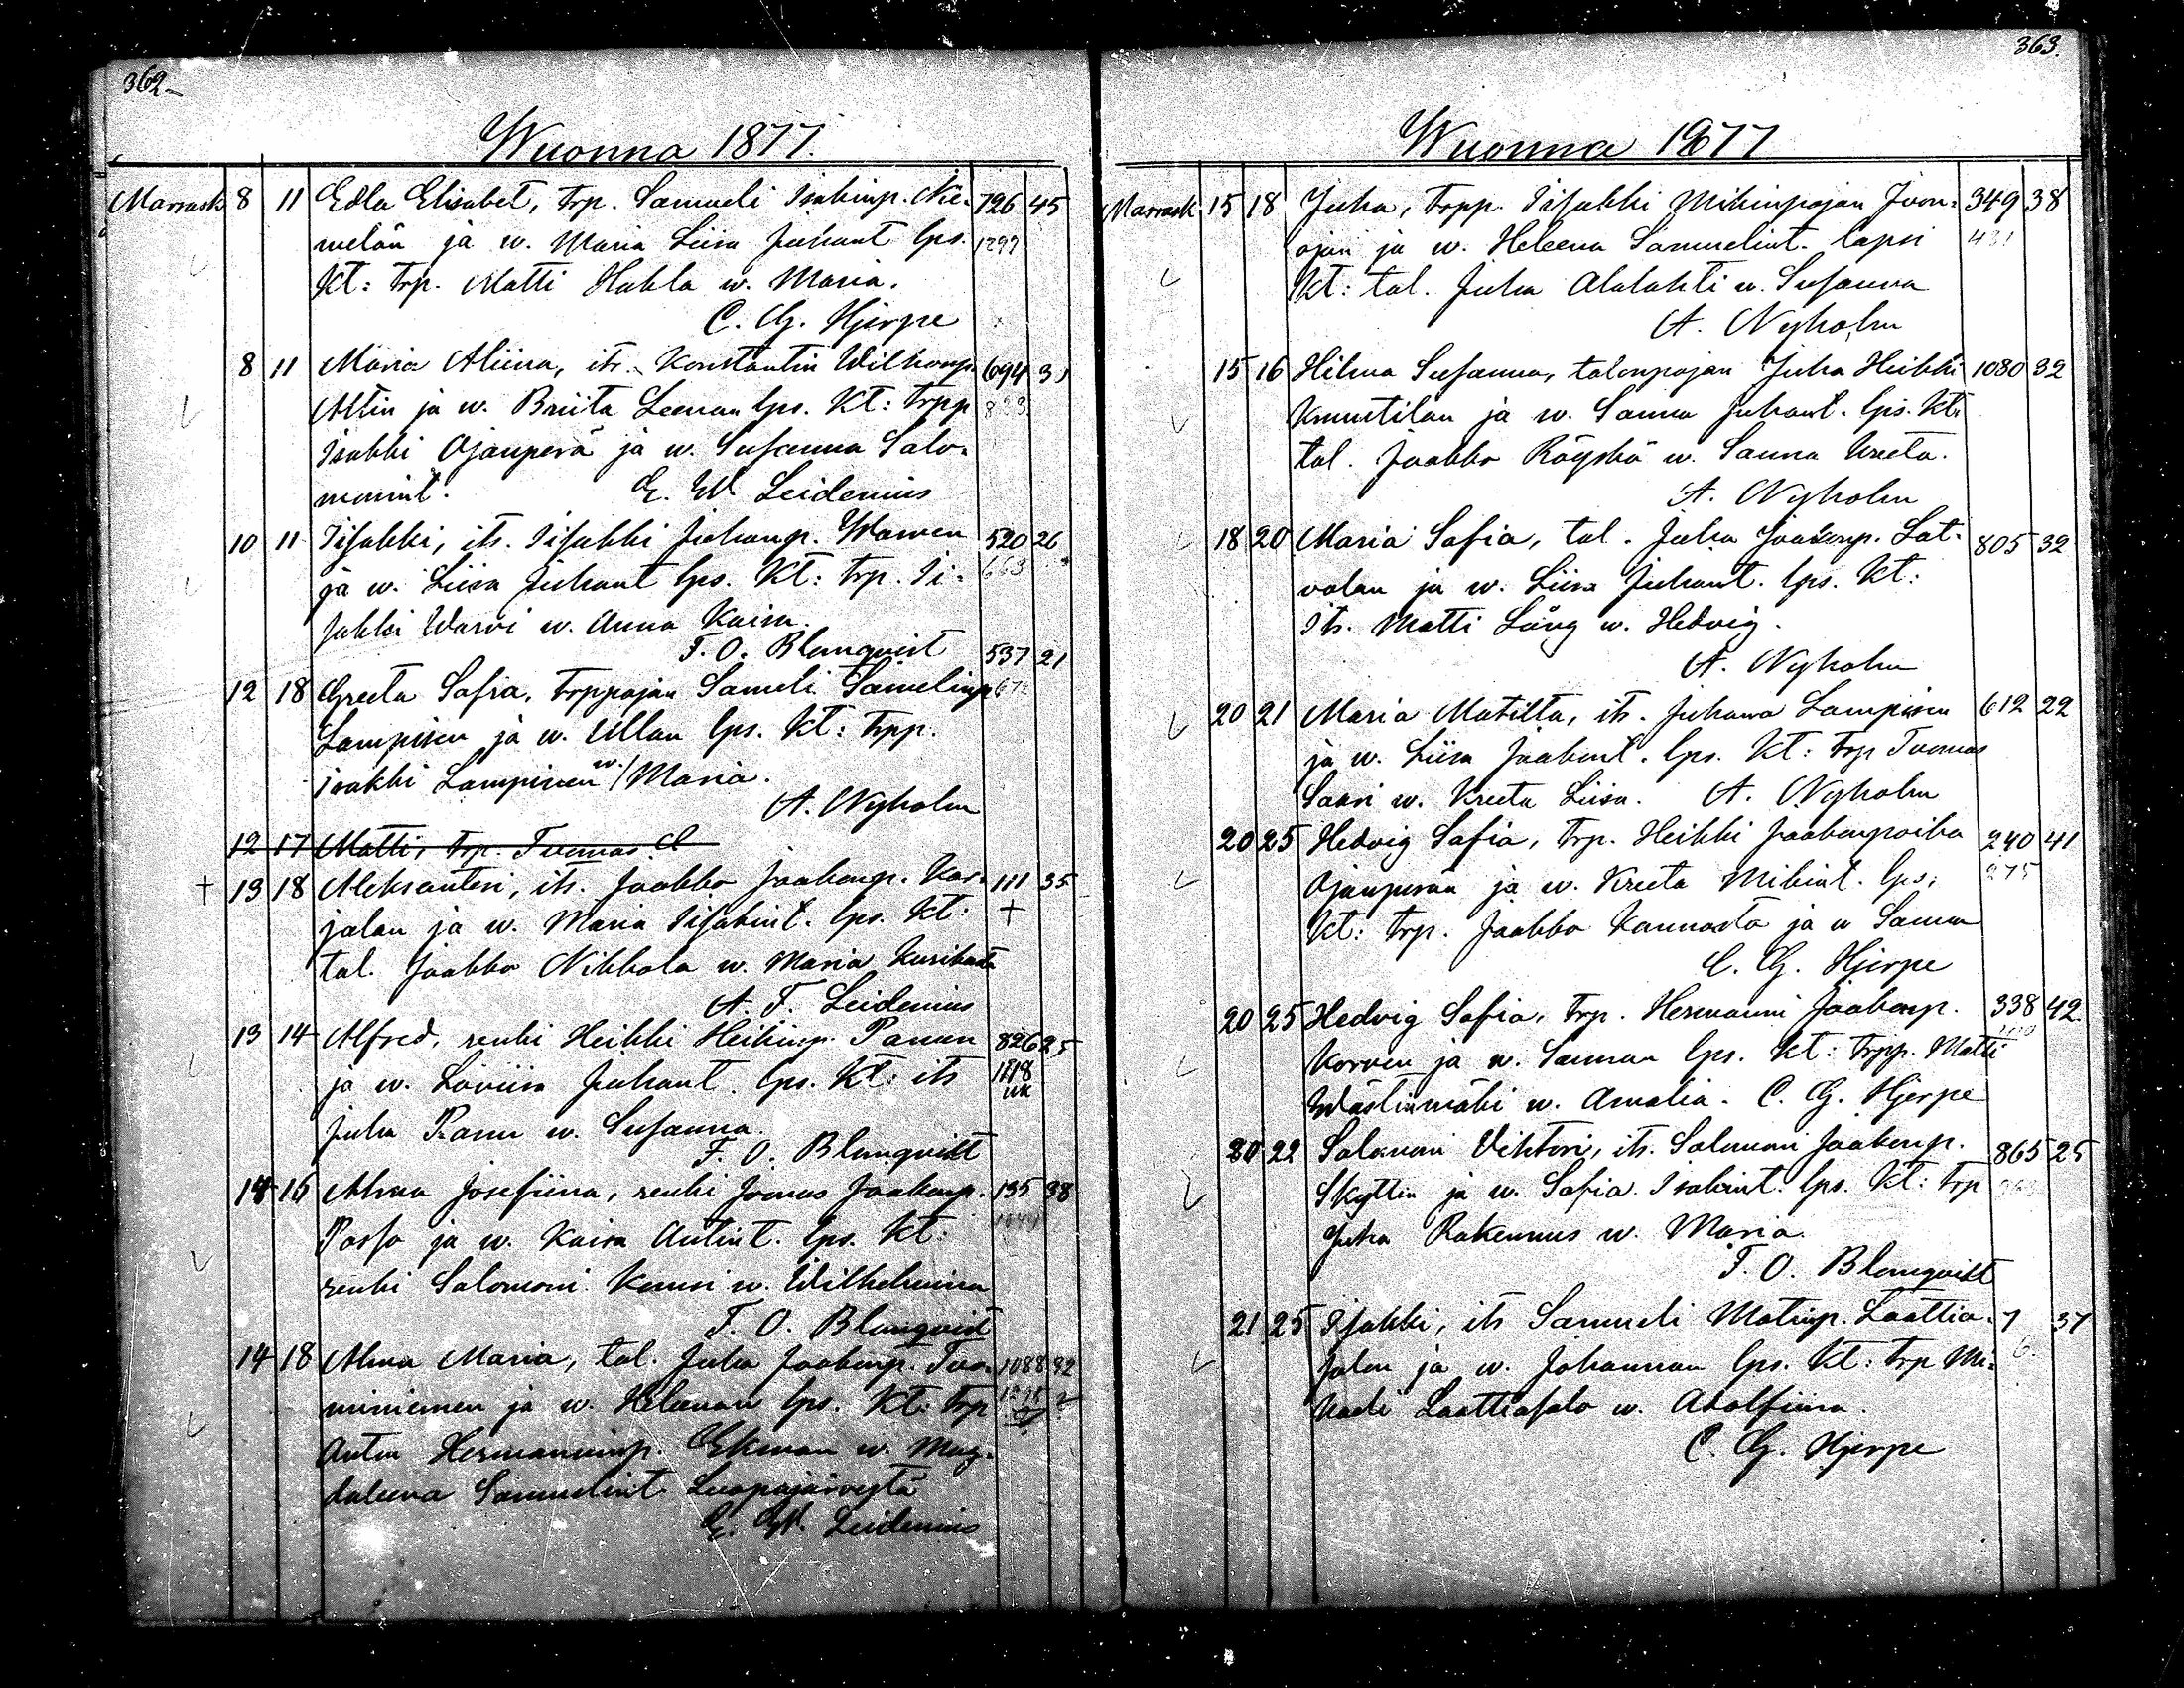 362
Wuonna 1877.
Marrask 8 11 Edla Elisabet, trp. Samueli Isakinp. Nie- 726 45
melän ja w. Maria Liisa Juhant lps. 1299
Kt: trp. Matti Hakla w. Maria.
C. G. Hjerpe
8 11 Maria Aliina, its. Konstantin Wilhonp. 694
Attin ja w. Briita Leenan lps. Kt: trpp
Isakki Ojanperä ja w. Susanna Salo-
monint. E. W. Leidenius
10 11 Iisakki, its. Iisakki Juhanp. 520 26
ja w. Liisa Juhant lps. Kt: trp. Ii- 663
sakki Warvi w. Anna Kaisa.
F. O. Blomqvist
537 21
12 18 Greeta Sofia, trppojan Sameli Samelinp
Lampisen ja w. Ullan lps. Kt: trpp.
isakki Lampinen w. Maria.
A. Nyholm
12 17 Matti, trp. Tuomas
+ 13 18 Aleksanteri, its. Jaakko Jaakonp. Kar- 111 35
jalan ja w. Maria Iisakint. lps. Kt: +
tal. Jaakko Nikkola w. Maria
A. F. Leidenius
13 14 Alfred, renki Heikki Heikinp. Panun 826 25
ja w. Loviisa Juhant. lps. Kt: its 1118
Juha Panu w. Susanna. uk
F. O. Blomqvist
14 16 Alma Josefiina, renki Joonas Jaakonp. 135 38
Posso ja w. Kaisa Antint. lps. Kt:
renki Salomoni w. Wilhelmiina
F. O. Blomqvist
14 18 Alma Maria, tal. Juha Jaakonp. Tuo- 1088 32
miniemen ja w. Heleenan lps. Kt: trp
Anton Hermanninp. Ekman w. Mag-
daleena Samuelint Luopajärvestä
E. W. Leidenius
363.
Wuonna 1877
Marrask 15 18 Juha, trpp. Iisakki Mikinpojan Juon- 349 38
ojan ja w. Heleena Samuelint. lapsi 431
Kt: tal. Juha Alalahti w. Susanna
A. Nyholm
15 16 Hilma Susanna, talonpojan Juha Heikki 1080 32
Knuutilan ja w. Sanna Juhant. lps. Kt:
tal. Jaakko Röyskö w. Sanna Kreeta.
A. Nyholm
18 20 Maria Sofia, tal. Juha Jaakonp. Lat- 805 32
volan ja w. Liisa Juhant. lps. Kt:
Its. Matti Lång w. Hedvig.
A. Nyholm
20 21 Maria Matilta, its. Juhana Lampisen 612 22
ja w. Liisa Jaakont. lps. Kt: trp Tuomas
Saari w. Kreeta Liisa. A. Nyholm
20 25 Hedvig Sofia, trp. Heikki Jaakonpoika 240 41
Ojanperän ja w. Kreeta Mikint. lps: 275
Kt: trp. Jaakko Kannosto ja w Sanna
C. G. Hjerpe
20 25 Hedvig Sofia, trp. Hermanni Jaakonp. 338 42
Korven ja w. Sannan lps. Kt: trpp. Matti
Wästinmäki w. Amalia. C. G. Hjerpe
20 22 Salomoni Vihtori, its. Salomoni Jaakonp. 865 25
Skyttin ja w. Sofia Isakint. lps. Kt: trp
Juha Rakennus w. Maria.
F. O. Blomqvist
21 25 Isakki, its Samueli Matinp. Laattia- 7 37
salon ja w. Johannan lps. Kt: trp Mi- 6.
kael Laattiasalo w. Adolfiina.
C. G. Hjerpe